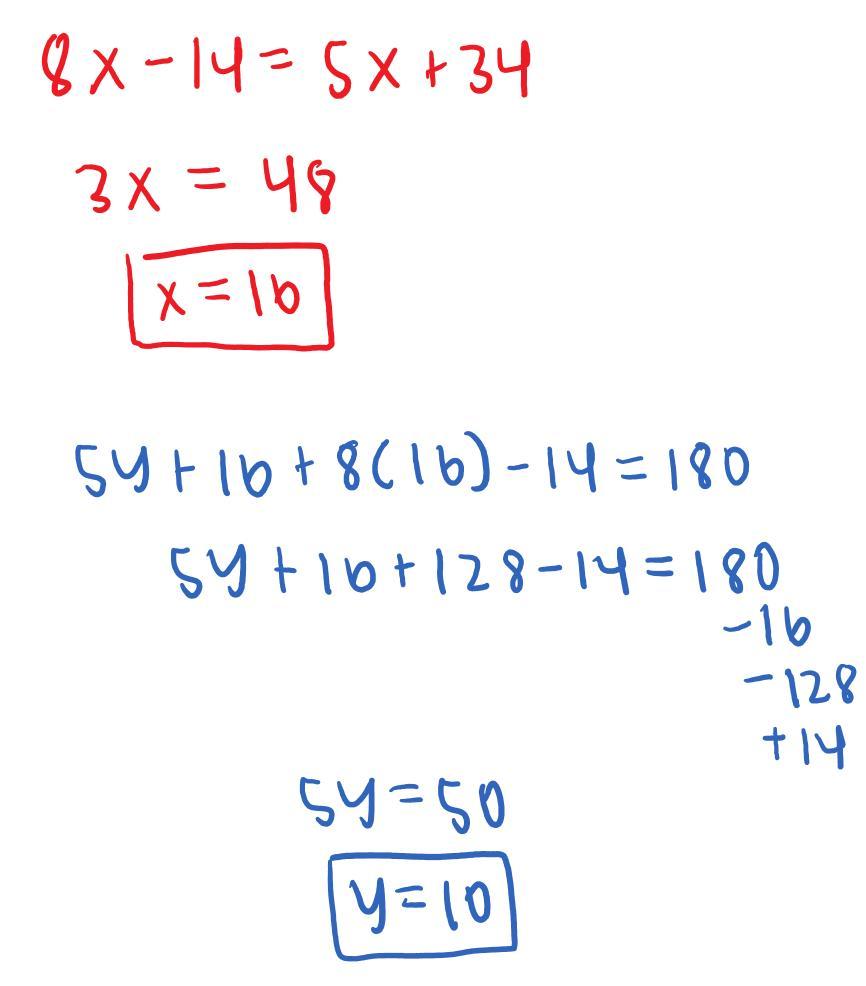 8x - 14 = 5x + 34
3x = 48
x = 16
5y + 16 + 8(16) - 14 = 180
5y + 16 + 128 - 14 = 180
- 16
- 128
+ 14
5y = 50
y = 10